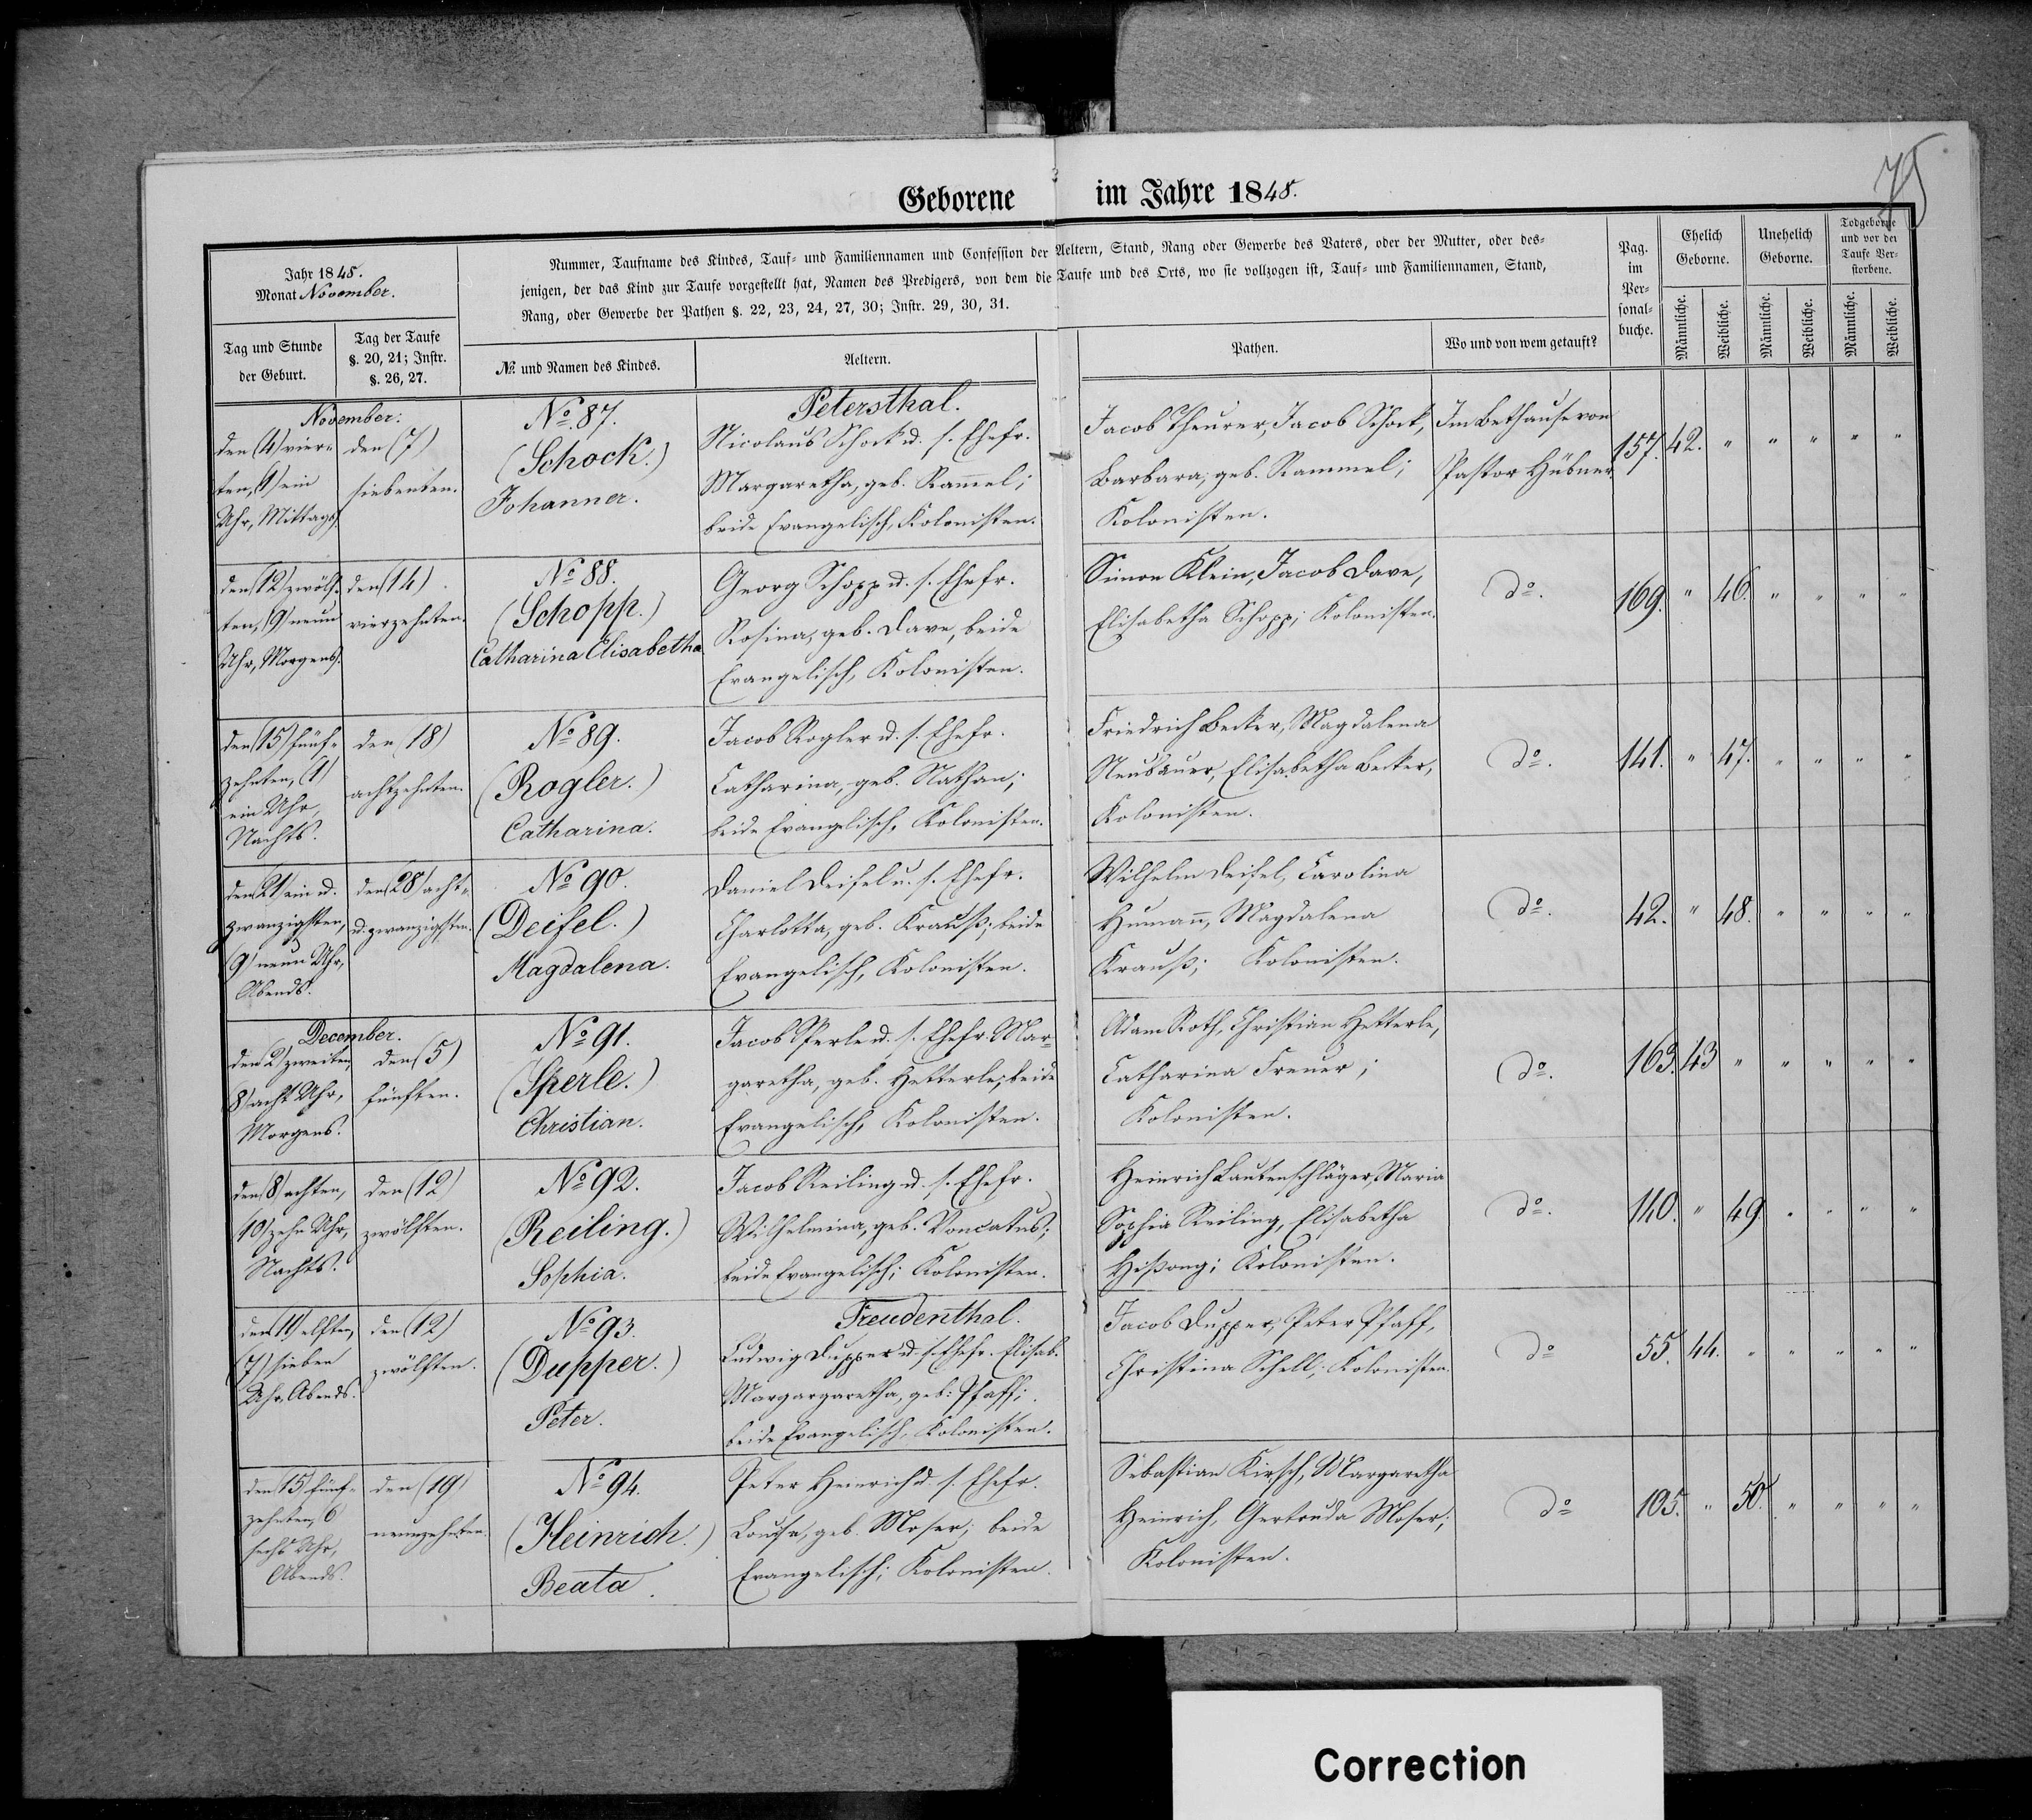 75
Geborene im Jahre 1848.
Jahr 1848.
Monat November.
Nummer, Taufname des Kindes, Tauf- und Familiennamen und Confession der Aeltern, Stand, Rang oder Gewerbe des Vaters, oder der Mutter, oder des-
jenigen, der das Kind zur Taufe vorgestellt hat, Namen des Predigers, von dem die Taufe und des Orts, wo sie vollzogen ist, Tauf- und Familiennamen, Stand,
Rang, oder Gewerbe der Pathen §. 22, 23, 24, 27, 30; Instr. 29, 30, 31.
Pag.
im
Per-
sonal-
buche.
Ehelich
Geborne.
Unehelich
Geborne.
Todgeborne
und vor der
Taufe Ver-
storbene.
Tag und Stunde
der Geburt.
Tag der Taufe
§. 20, 21; Instr.
§. 26, 27.
No. und Namen des Kindes.
Aeltern.
Pathen.
Wo und von wem getauft?
Männliche.
Weibliche.
Männliche.
Weibliche.
Männliche.
Weibliche.
November.
den (4) vier-
ten, (1) ein
Uhr, Mittags.
den (7)
siebenten.
No. 87.
(Schock.)
Johannes.
Petersthal.
Nicolaus Schock u. s. Ehefr.
Margaretha, geb. Ram̅el;
beide Evangelisch, Kolonisten.
Jacob Theurer, Jacob Schock,
Barbara, geb. Rammel;
Kolonisten.
Im Bethause von
Pastor Hübner.
157. 42. " " " " "
den (12) zwölf-
ten, (9) neun
Uhr, Morgens.
den (14)
vierzehnten.
No. 88.
(Schopp.)
Catharina Elisabetha
Georg Schopp u. s. Ehefr.
Rosina, geb. Dave, beide
Evangelisch, Kolonisten.
Simon Klein, Jacob Dave,
Elisabetha Schopp; Kolonisten.
do.
169. " 46. " " " "
den (15) fünf-
zehnten, (1)
ein Uhr,
Nachts.
den (18)
achtzehnten.
No. 89.
(Rogler.)
Catharina.
Jacob Rogler u. s. Ehefr.
Catharina, geb. Nathan;
beide Evangelisch, Kolonisten.
Friedrich Becker, Magdalena
Neubauer, Elisabetha Becker,
Kolonisten.
do.
141. " 47. " " " "
den (21) ein u.
zwanzigsten,
(9) neun Uhr,
Abends.
den (28) acht-
u. zwanzigsten.
No. 90.
(Deifel.)
Magdalena.
Daniel Deifel u. s. Ehefr.
Charlotta, geb. Krauß; beide
Evangelisch, Kolonisten.
Wilhelm Deifel, Carolina
Human̅, Magdalena
Krauß; Kolonisten.
do.
42. " 48. " " " "
December.
den (2) zweiten,
(8) acht Uhr,
Morgens.
den (5)
fünften.
No. 91.
(Sperle.)
Christian.
Jacob Sperle u. s. Ehefr. Mar-
garetha, geb. Hetterle; beide
Evangelisch, Kolonisten.
Adam Roth, Christian Hetterle,
Catharina Freuer;
Kolonisten.
do.
163. 43 " " " " "
den (8) achten,
(10) zehn Uhr,
Nachts.
den (12)
zwölften.
No. 92.
(Reiling.)
Sophia.
Jacob Reiling u. s. Ehefr.
Wilhelmina, geb. Doncatus;
beide Evangelisch; Kolonisten.
Heinrich Lautenschläger, Maria
Sophia Reiling, Elisabetha
Hißong; Kolonisten.
do.
140. " 49. " " " "
den (11) elften,
(7) sieben
Uhr, Abends.
den (12)
zwölften.
No. 93.
(Dupper.)
Peter.
Freudenthal.
Ludwig Dupper u. s. Ehefr. Elisab.
Margargaretha, geb: Pfaff;
beide Evangelisch, Kolonisten.
Jacob Dupper, Peter Pfaff,
Christina Schell; Kolonisten.
do
55. 44. " " " " "
den (15) fünf-
zehnten, 6
sechs Uhr,
Abends.
den (19)
neunzehnten.
No. 94.
(Heinrich.)
Beata.
Peter Heinrich u. s. Ehefr.
Louisa, geb. Moser; beide
Evangelisch; Kolonisten.
Sebastian Kirsch, Margaretha
Heinrich, Gertruda Moser;
Kolonisten.
do
105. " 50. " " " "
Correction